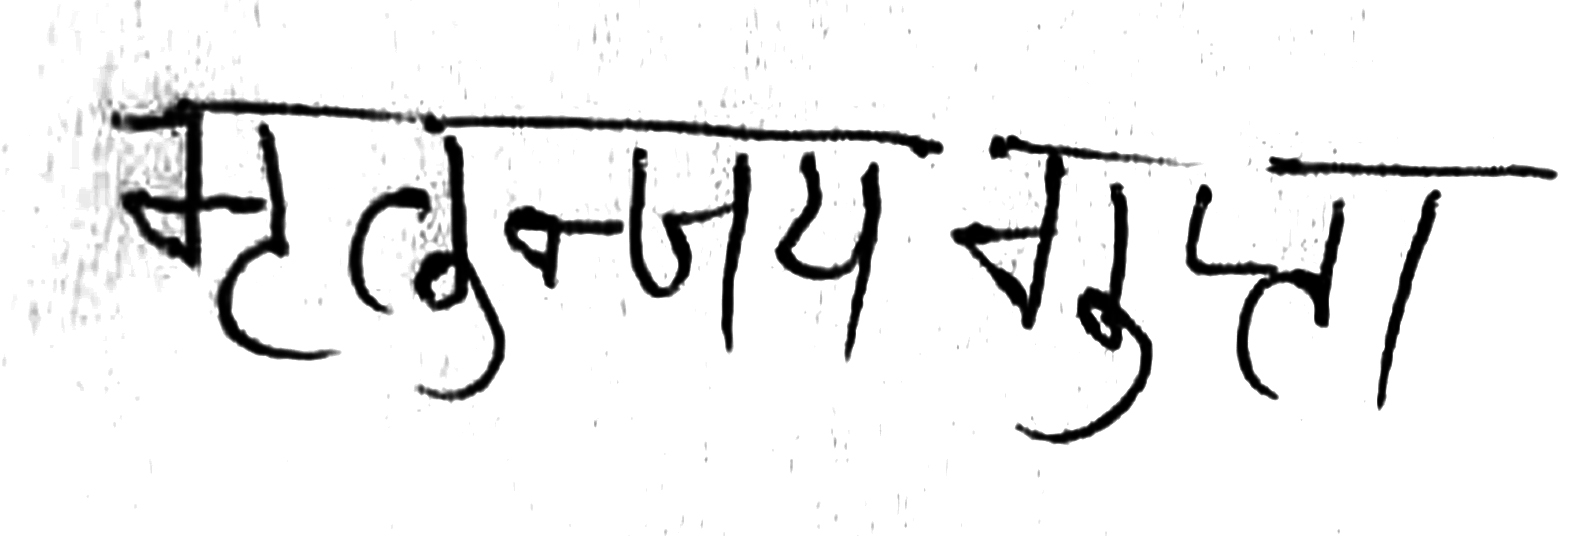 मृतुन्जय गुप्ता